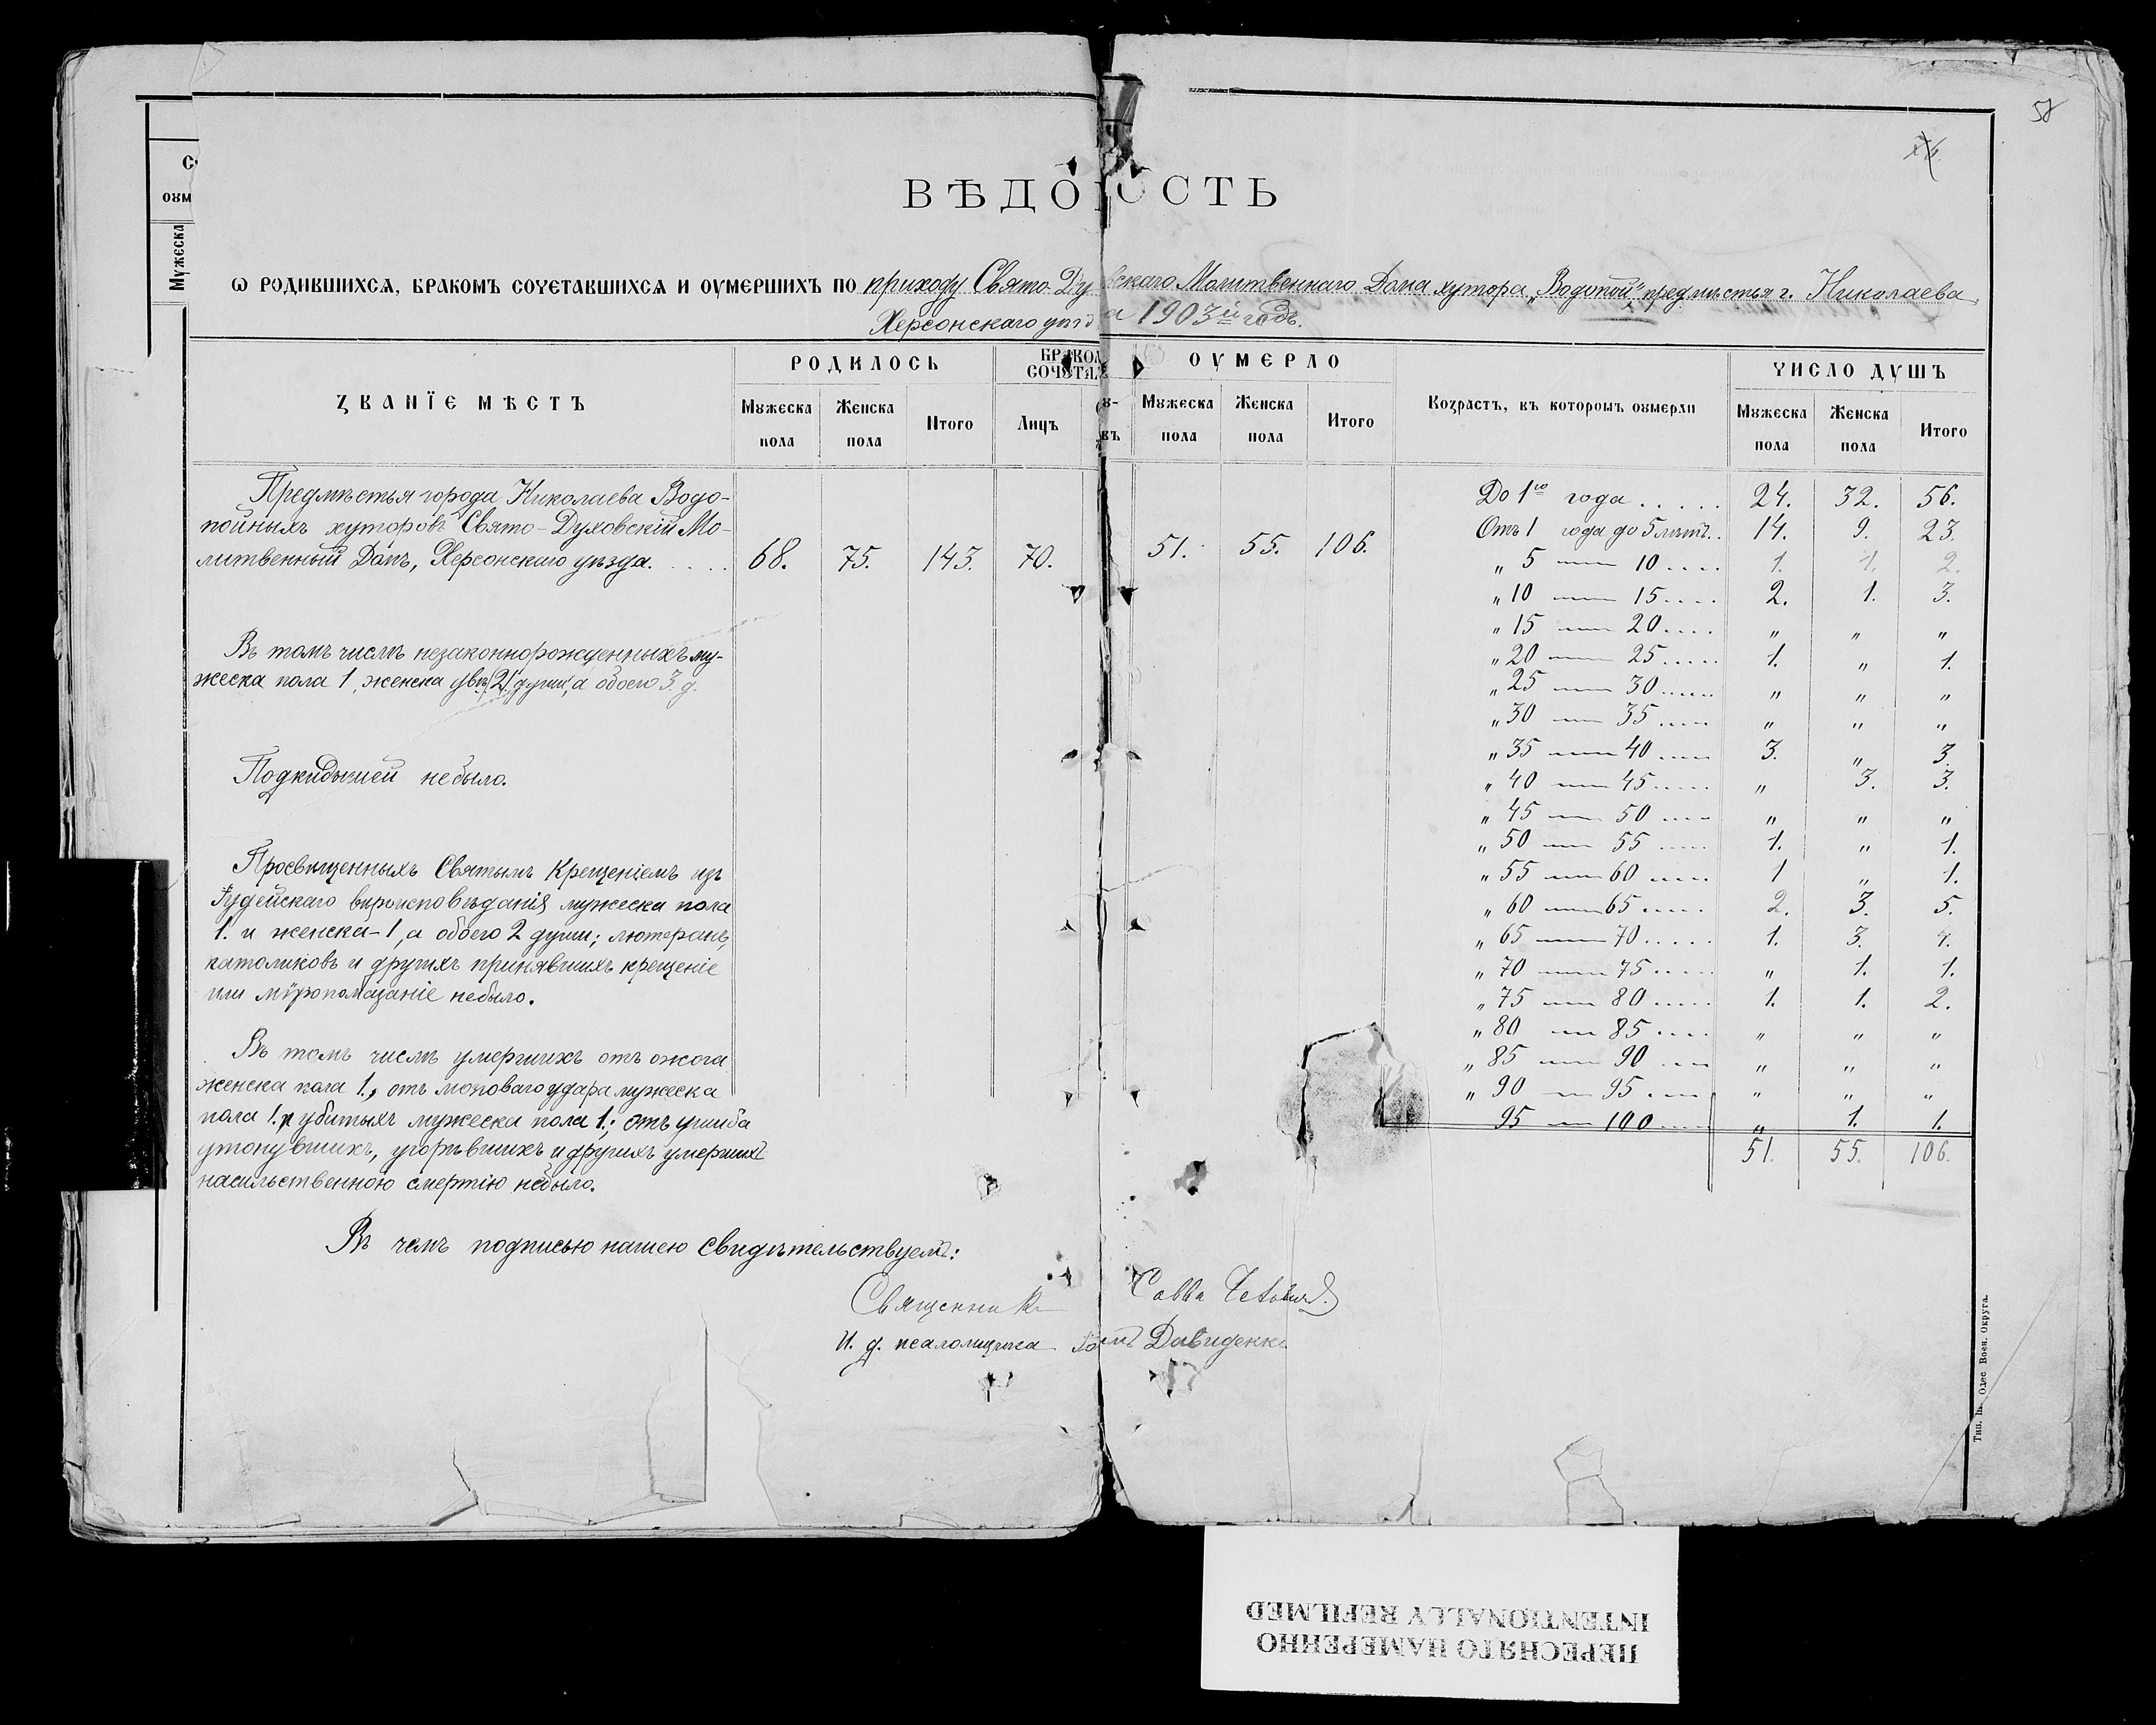 58
ВѢДОМОСТЬ
Ѡ РОДИВШИХСѦ, БРАКОМЪ СОЧЕТАВШИХСѦ И ОУМЕРШИХЪ ПО приходу Свято-Духовскаго Молитвеннаго Дома хутора „Водопой" предмѣстья г. Николаева,
Херсонскаго уѣзда 1903й годъ.
ЗВАНЇЕ МѢСТЪ
РОДИЛОСЬ
Мужеска пола
Женска пола
Итого
БРАКОМ
СОЧЕТАЛ
Лицъ
ОУМЕРЛО
Мужеска пола
Женска пола
Итого
Возрастъ, въ которомъ оумерли
ЧИСЛО ДУШЪ
Мужеска пола
Женска пола
Итого
Предмѣстья города Николаева Водо-
пойныхъ хуторовъ Свято-Духовскій Мо-
литвенный Домъ, Херсонскаго уѣзда. . . . . 68. 75. 143. 70. 51. 55. 106.
Въ томъ числѣ незаконнорожденныхъ му-
жеска пола 1, женска двѣ (2) души, а обоего 3 д.
Подкидышей небыло.
Просвѣщенныхъ Святымъ Крещеніемъ изъ
Іудейскаго вѣроисповѣданія мужеска пола
1. и женска-1, а обоего 2 души; лютеранъ,
католиковъ и другихъ принявшихъ крещеніе
или мѵропомазаніе небыло.
Въ томъ числѣ умершихъ отъ ожога
женска пола 1., отъ удара мужеска
пола 1. и убитыхъ мужеска пола 1.; отъ ушиба
утонувшихъ, угорѣвшихъ и другихъ умершихъ
насильственною смертію небыло.
До 1го года . . . . . 24. 32. 56.
Отъ 1 года до 5 лѣтъ. . 14. 9. 23.
„ 5 — 10 . . . . 1. 1. 2.
„ 10 — 15 . . . . 2. 1. 3.
„ 15 — 20 . . . . „ „ „
„ 20 — 25 . . . . . 1. „ 1.
„ 25 — 30 . . . . . „ „ „
„ 30 — 35 . . . . „ „ „
„ 35 — 40 . . . . 3. „ 3.
„ 40 — 45 . . . . . „ 3. 3.
„ 45 — 50 . . . . „ „ „
„ 50 — 55 . . . . . 1. „ 1.
„ 55 — 60 . . . . . 1 „ 1.
„ 60 — 65 . . . . . 2. 3. 5.
„ 65 — 70 . . . . . 1. 3. 4.
„ 70 — 75 . . . . . „ 1. 1.
„ 75 — 80 . . . . . 1. 1. 2.
„ 80 — 85 . . . . „ „ „
„ 85 — 90 . . . . „ „ „
„ 90 — 95 . . . . „ „ „
95 — 100 . . . . „ 1. 1.
51. 55. 106.
Въ чемъ подписью нашею свидѣтельствуемъ:
Священникъ Савва
И. д. псаломщика Давиденко
Одес Воен. Округа.
ПЕРЕСНЯТО НАМЕРЕННО
INTENTIONALLY REFILMED